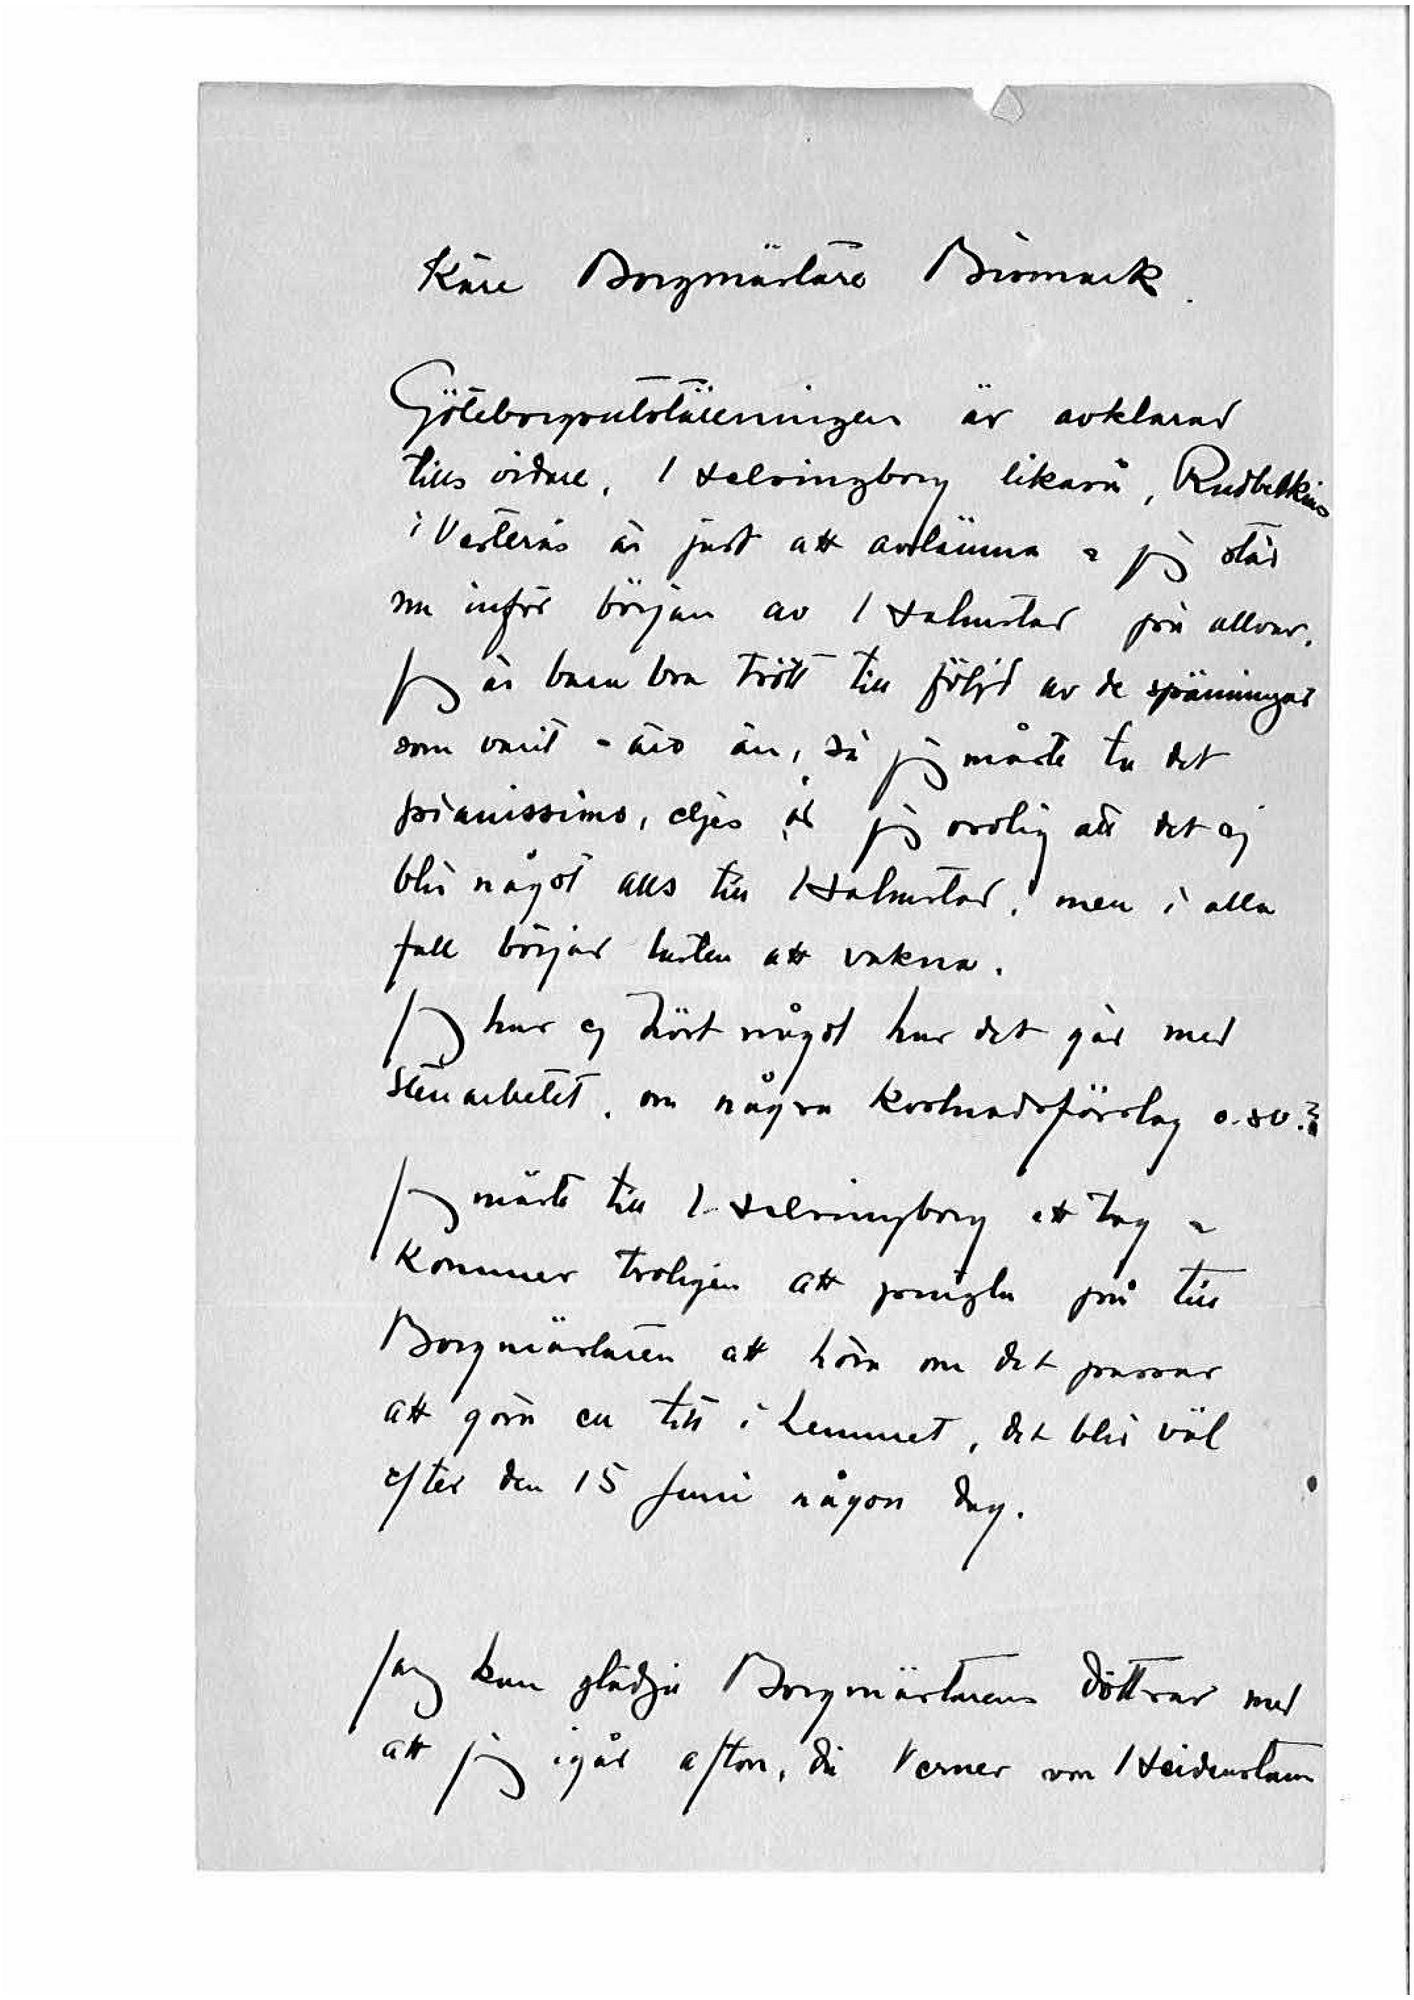 Käre Borgmästare Bismark.
Göteborgsutställningen är avklarad
tills vidare, Helsingborg likaså, Rudbeckius
i Vesterås är just att avlämna & jag står
nu inför början av Halmstad på allvar.
Jag är bara bra trött till följd av de spänningar
som varit & äro än, så jag måste ta det
pianissimo, eljes är jag orolig att det ej
blir något alls till Halmstad, men i alla
fall börjar lusten att vakna.
Jag har ej hört något hur det går med
stenarbetet, om några kostnadsförslag o.sv.?
Jag måste till Helsingborg ett tag &
kommer troligen att pringla på till
Borgmästaren att höra om det passar
att göra en titt i hemmet, det blir väl
efter den 15 Juni någon dag.
Jag kan glädja Borgmästarens döttrar med
att jag igår afton, då Verner von Heidenstam